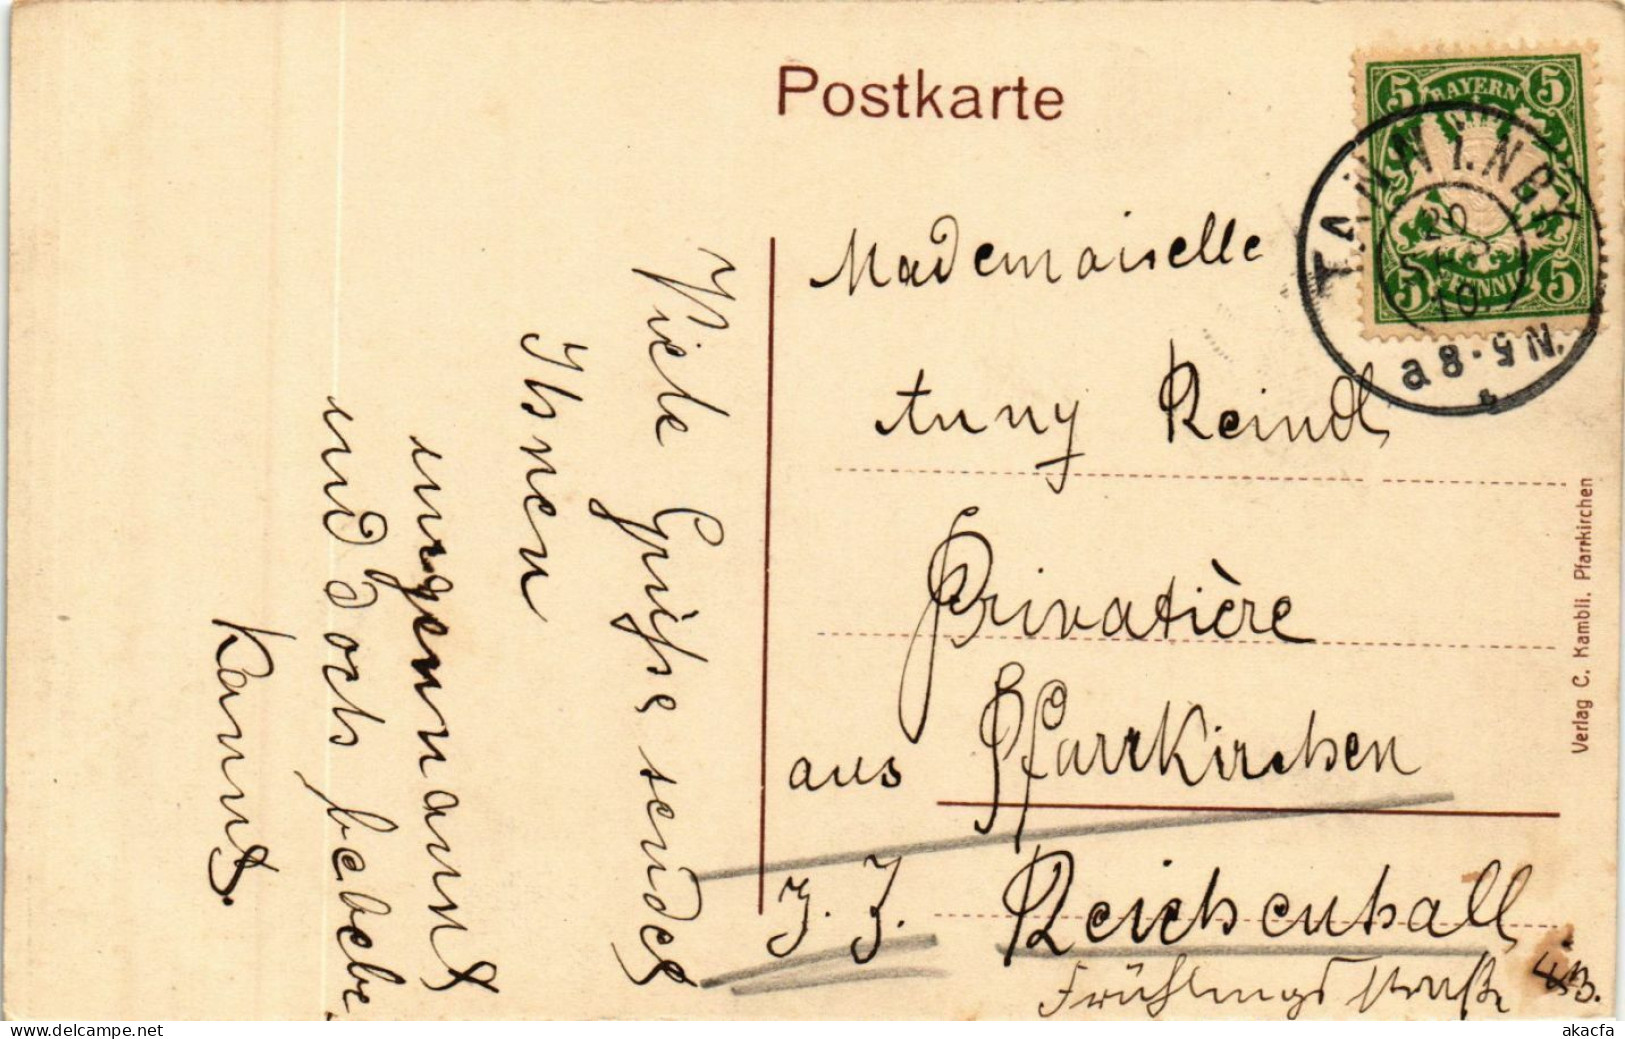 Postkarte
5 BAYERN 5
5 PFENNIG 5
TANN I. NBY.
20
SEP
10
N. 5-8 a
Mademoiselle
Anny Reindl
Privatière
aus Pfarrkirchen
z. Z. Reichenhall
Frühlingsstraße
Viele Grüße sendet
Ihnen
ungenannt
und doch
bekannt.
Verlag C. Kambli. Pfarrkirchen
akacfa - delcampe.net